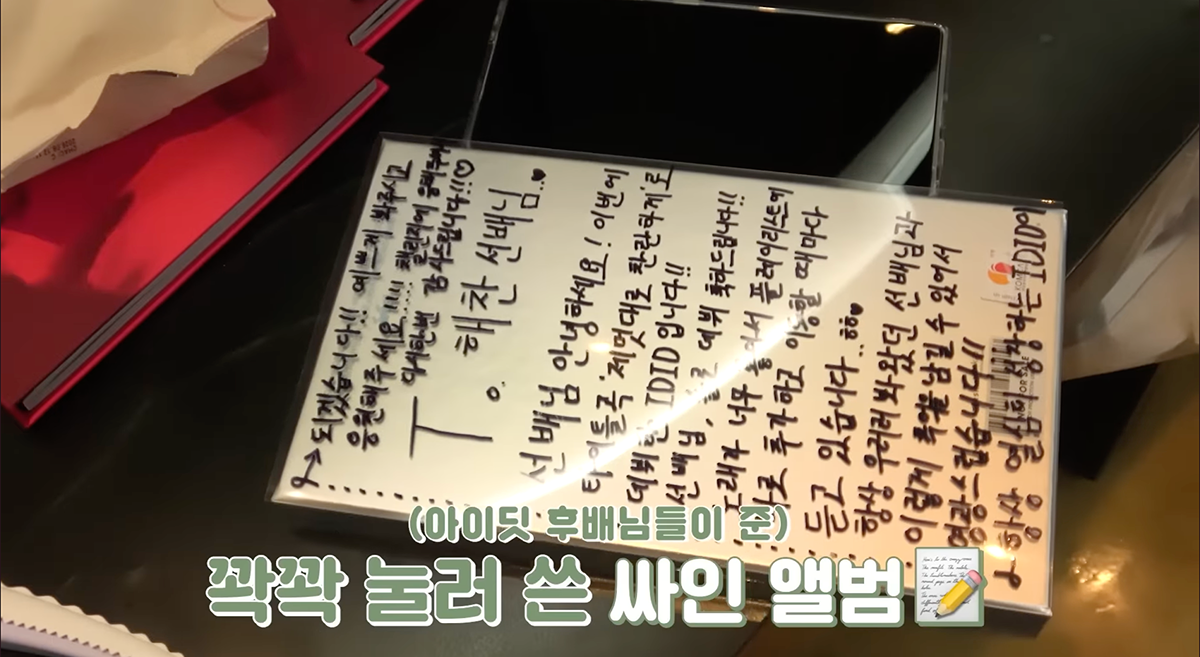 To. 해찬 선배님..♥
선배님 안녕하세요! 이번에
타이틀곡 '제멋대로 찬란하게'로
데뷔한 IDID 입니다!!
선배님, 솔로 데뷔 축하드립니다!!
노래가 너무 좋아서 플레이리스트에
바로 추가하고 이동할 때마다
듣고 있습니다..ㅎㅎ♥
항상 우러러 봐왔던 선배님과
이렇게 남길 수 있어서
영광스럽습니다!!
항상 열심히 성장하는 IDID이
→ 되겠습니다!! 예쁘게 봐주시고
응원해주세요!!!!! 챌린지에
다시한번 감사드립니다!!♡
(아이딧 후배님들이 준)
꽉꽉 눌러 쓴 싸인 앨범